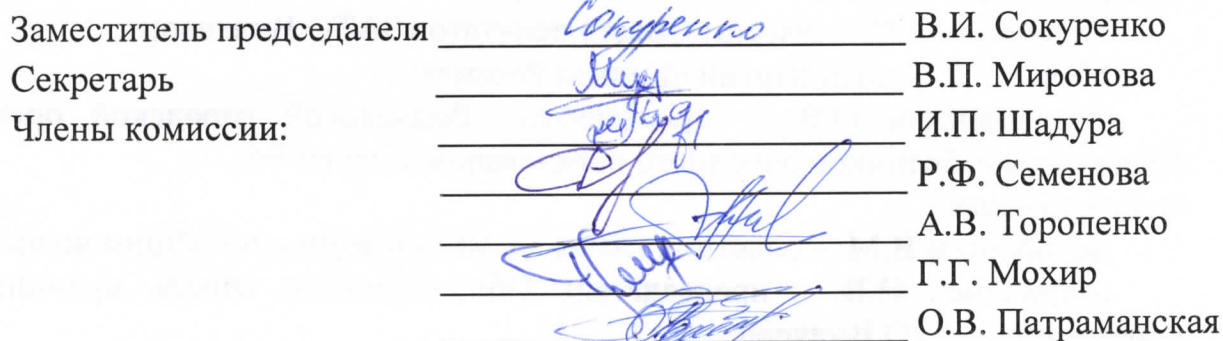 Заместитель председателя Сокуренко В.И. Сокуренко
Секретарь В.П. Миронова
Члены комиссии: И.П. Шадура
Р.Ф. Семенова
А.В. Торопенко
Г.Г. Мохир
О.В. Патраманская